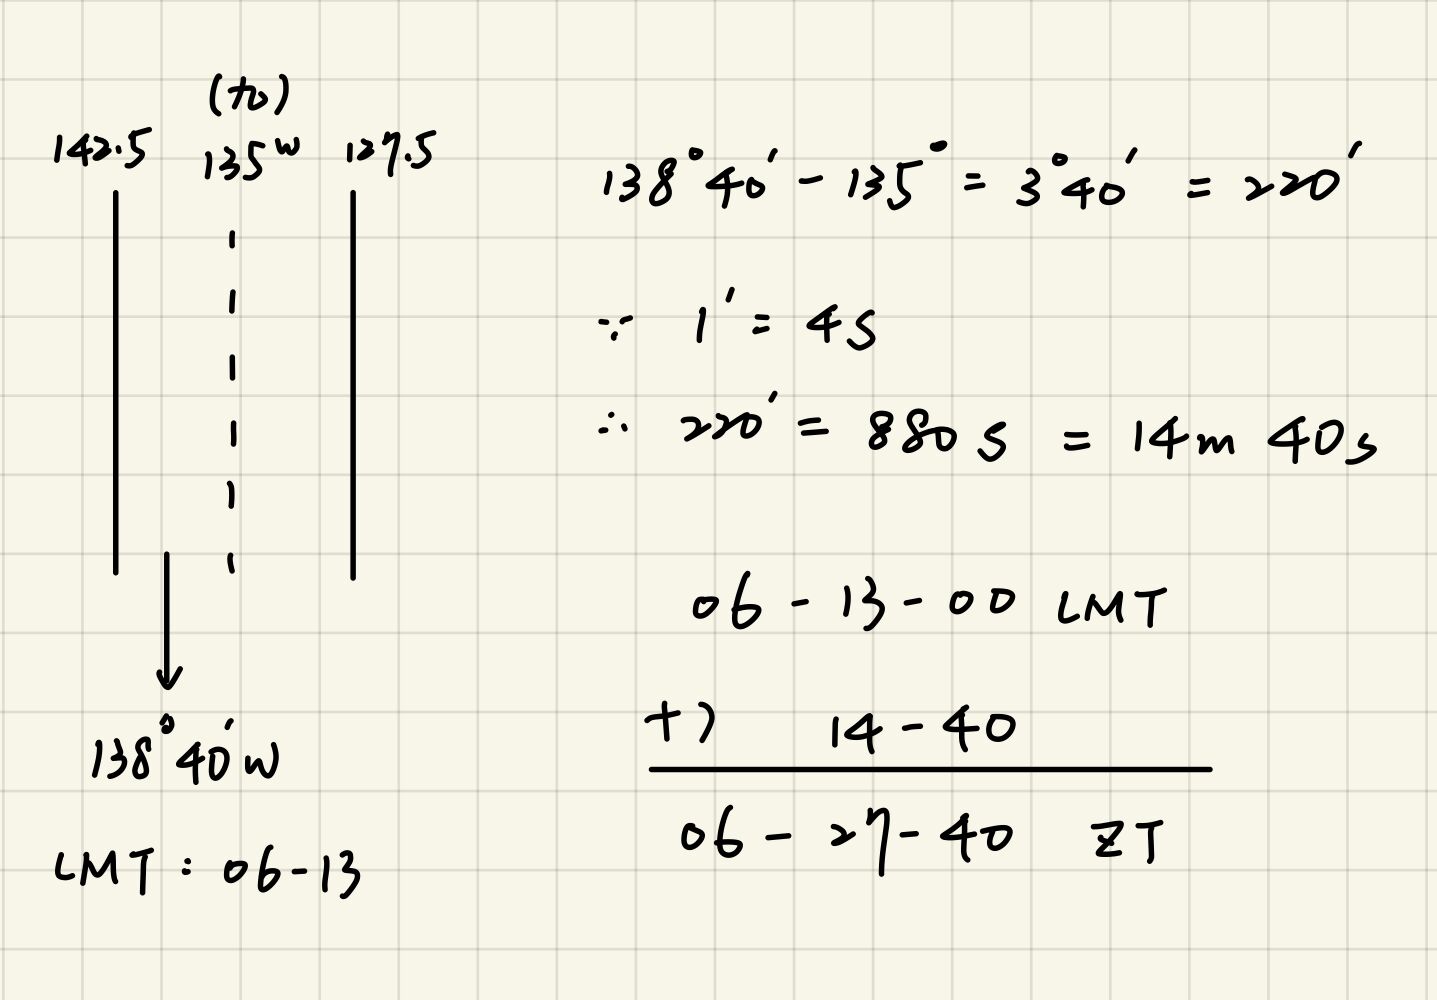 (to)
142.5 135W 127.5
138°40'W
LMT : 06-13
138°40' - 135° = 3°40' = 220'
∵ 1' = 4s
∴ 220' = 880s = 14m 40s
06 - 13 - 00 LMT
+) 14 - 40
06 - 27 - 40 ZT